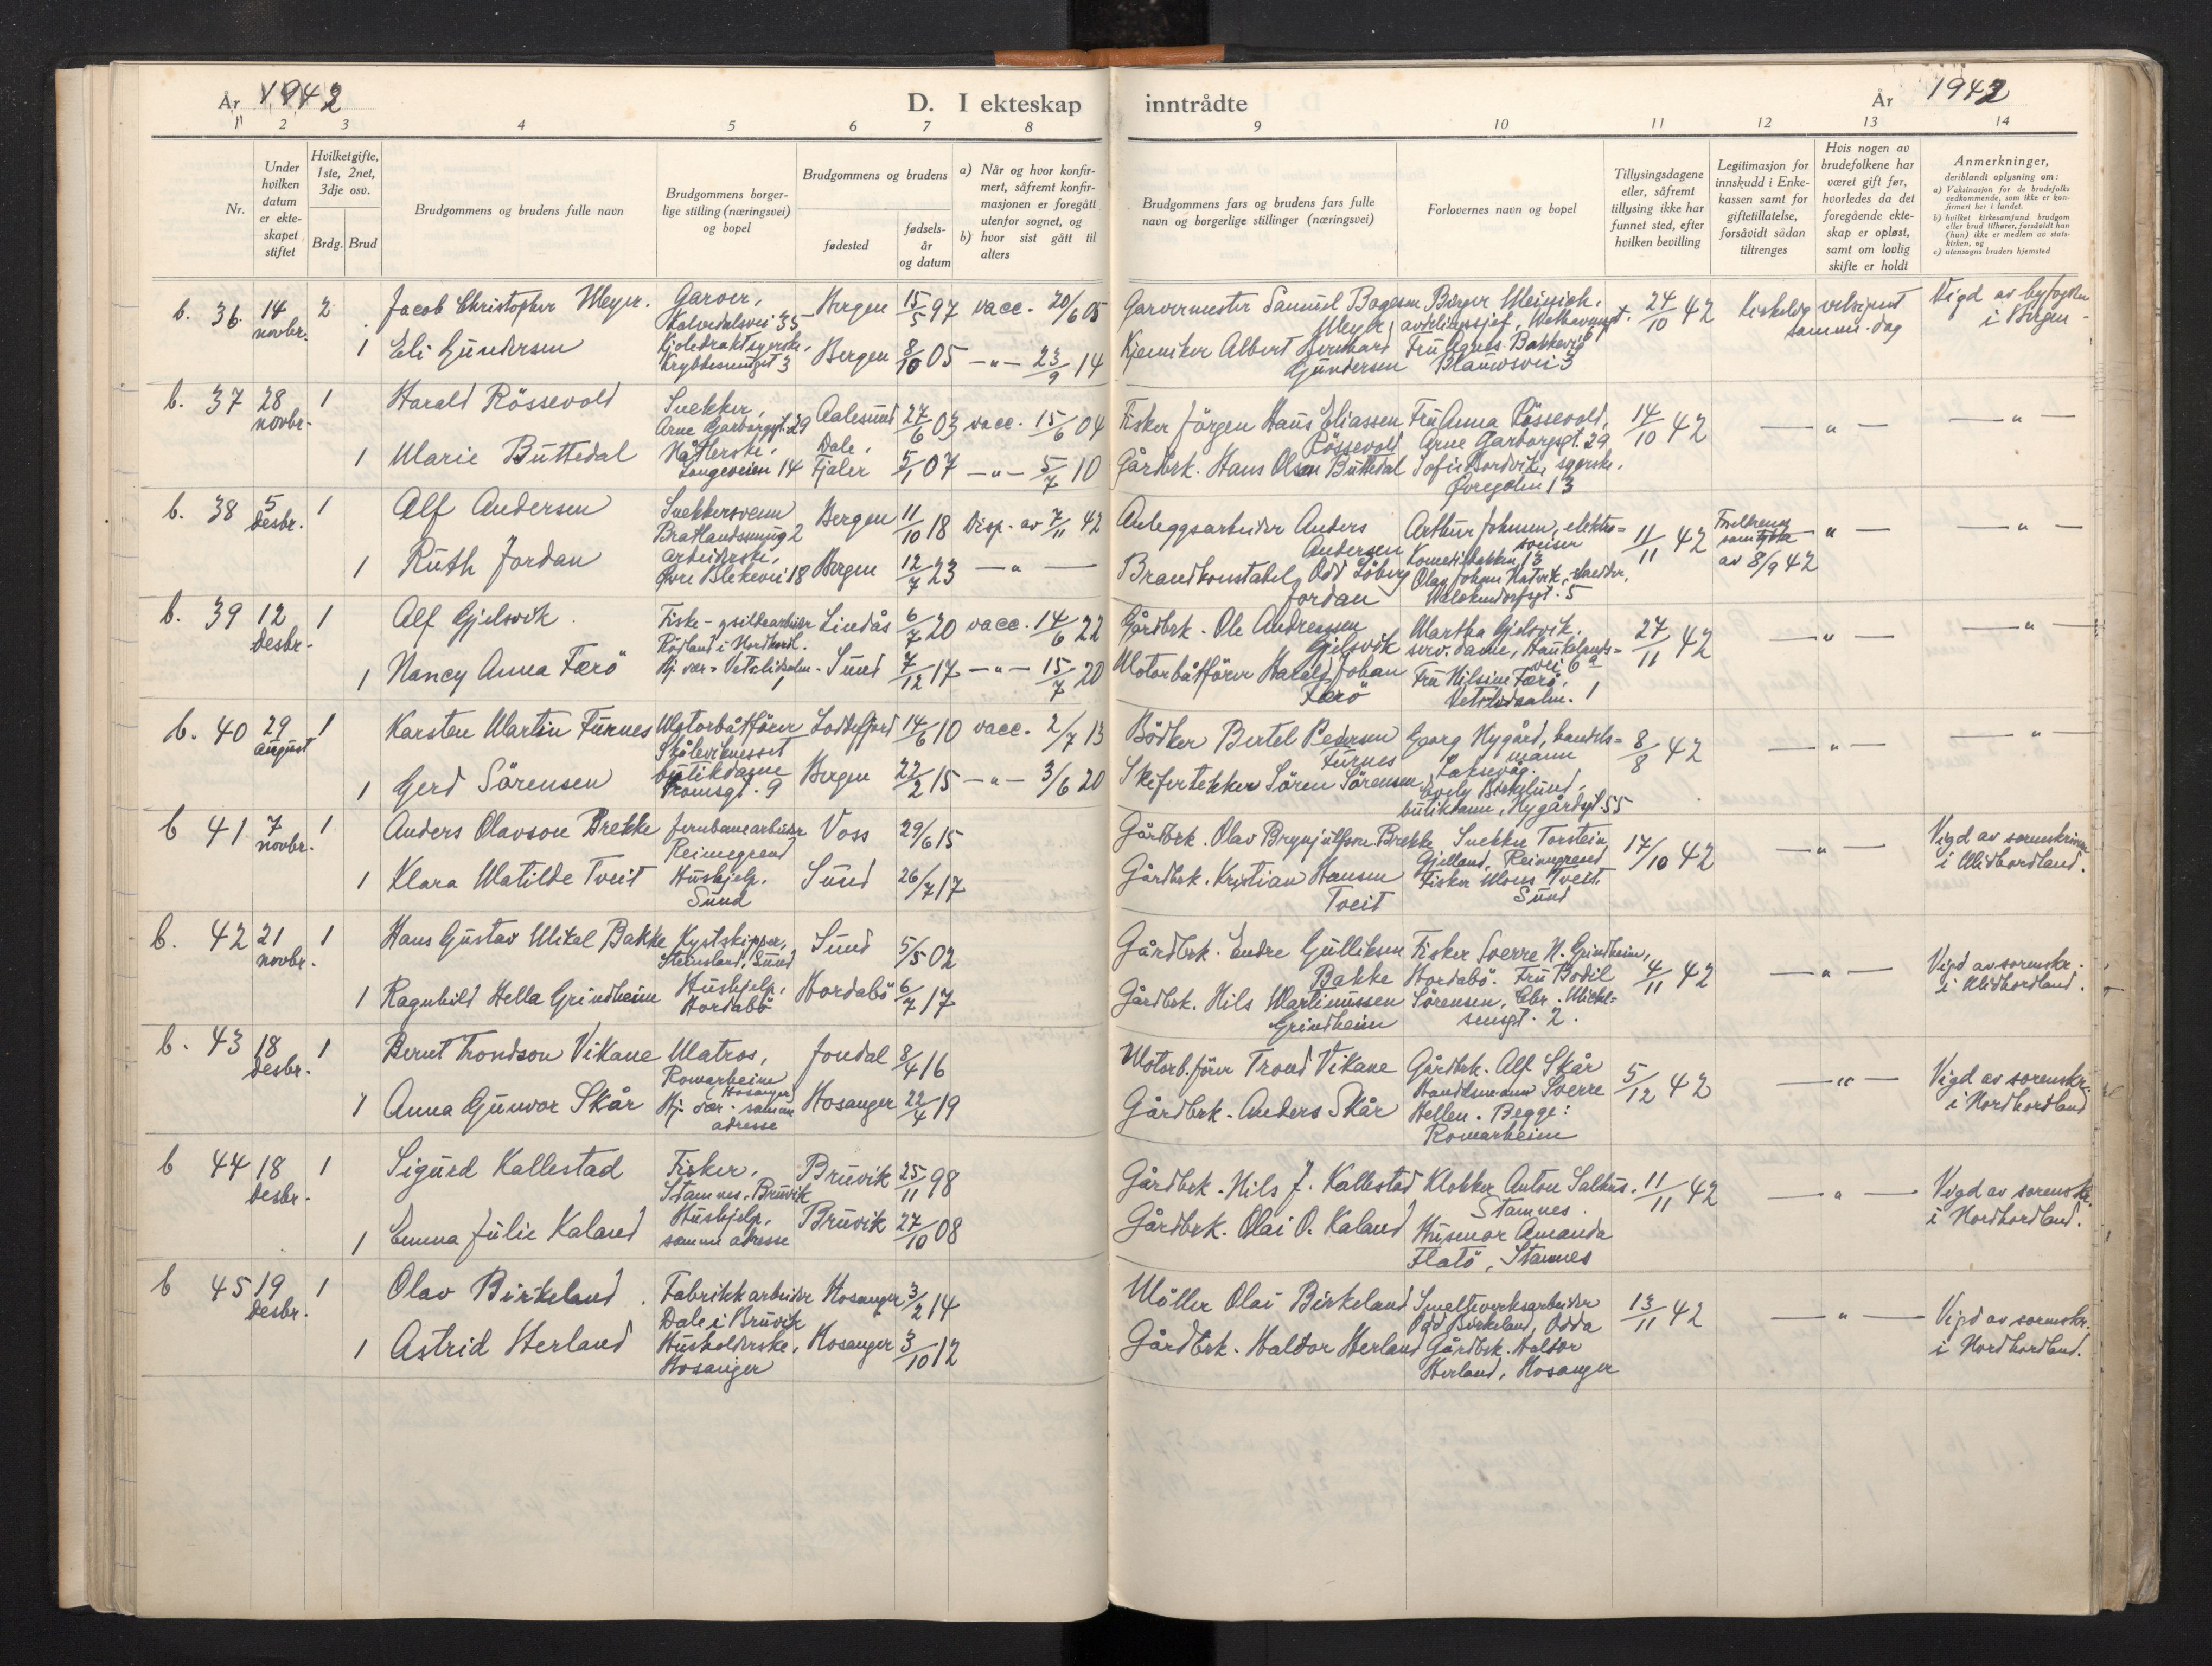 År 1942
D. I ekteskap
inntrådte
År 1942
1 2 3 4 5 6 7 8
9 10 11 12 13 14
Nr.
Under hvilken datum er ekteskapet stiftet
Hvilket gifte, 1ste, 2net, 3dje osv.
Brdg. Brud
Brudgommens og brudens fulle navn
Brudgommens borgerlige stilling (næringsvei) og bopel
Brudgommens og brudens
fødested
fødselsår og datum
a) Når og hvor konfirmert, såfremt konfirmasjonen er foregått utenfor sognet, og
b) hvor sist gått til alters
Brudgommens fars og brudens fars fulle navn og borgerlige stillinger (næringsvei)
Forlovernes navn og bopel
Tillysingsdagene eller, såfremt tillysing ikke har funnet sted, efter hvilken bevilling
Legitimasjon for innskudd i Enkekassen samt for giftetillatelse, forsåvidt sådan tiltrenges
Hvis nogen av brudefolkene har været gift før, hvorledes da det foregående ekteskap er opløst, samt om lovlig skifte er holdt
Anmerkninger,
deriblandt oplysning om:
a) Vaksinasjon for de brudefolks vedkommende, som ikke er konfirmert her i landet.
b) hvilket kirkesamfund brudgom eller brud tilhører, forsåvidt han (hun) ikke er medlem av statskirken, og
c) utensogns bruders hjemsted
b. 36. 14 novbr. 2 Jacob Christopher Meyer. Garver, Kalvedalsvei 35 Bergen 15/5 97 vacc. 20/6 05
Garvermester Samuel Meyer 24/10 42 samme dag Vigd av byfogden i Bergen
1 Eli Gundersen Kjoledraktsyerske, 3 Bergen 8/10 05 -"- 23/9 14
Kjemiker Albert Bernhard Gundersen Fru Agnes
b. 37 28 novbr. 1 Harald Rössevold Snekker, Arne Garborgsgt. 29 Aalesund 27/6 03 vacc. 15/6 04
Fisker Jörgen Hans Eliassen Rössevold Fru Anna Rössevold, Arne Garborgsgt. 29 14/10 42 — " — — " —
1 Marie Buttedal Langeveien 14 Dale, Fjaler 5/1 07 -"- 5/7 10
Gårdbrk. Hans Olsen Buttedal syerske, 13
b. 38 5 desbr. 1 Alf Andersen Snekkersvenn Bratlandssmug 2 Bergen 11/10 18 Disp. av 7/11 42
Anleggsarbeider Anders Andersen Arthur Johnsen, elektrosveiser 13 11/11 42 samtykke av 8/9 42 " — — " —
1 Ruth Jordan arbeiderske, Øvre Blekevei 18 Bergen 12/7 23 — " —
Brandkonstabel Odd Löberg Jordan Olav Johan Hatvik, Walckendorfsgt. 5
b. 39 12 desbr. 1 Alf Gjelsvik. Fiske- Lindås 6/7 20 vacc. 14/6 22
Gårdbrk. Ole Andreassen Gjelsvik Martha Gjelsvik, serv. dame, Haukelandsvei 6a 27/11 42 — " — — " —
1 Nancy Anna Færö Hj. vær. Vetrlidsalm. 1 Sund 7/12 17 — " — 15/7 20
Motorbåtförer Harald Johan Færö Fru Nilsine Færö, Vetrlidsalm. 1
b. 40 29 august 1 Karsten Martin Furnes Motorbåtförer Skåleviknesset Loddefjord 14/6 10 vacc. 2/7 13
Bödker Bertel Pedersen Furnes Georg Nygård, handelsmann Laksevåg. 8/8 42 — " — — " —
1 Gerd Sörensen butikdame 9 Bergen 22/2 15 — " — 3/6 20
Skifertekker Sören Sörensen Birkelund, butikdame, Nygårdsgt. 55
b 41 7 novbr. 1 Anders Olavson Brekke Jernbanearbeider Reimegrend Voss 29/6 15
Gårdbrk. Olav Brynjulfson Brekke Snekker Torstein Gjelland, Reimegrend 17/10 42 — " — Vigd av sorenskriver i Midhordland.
1 Klara Matilde Tveit Hushjelp. Sund Sund 26/7 17
Gårdbrk. Kristian Hansen Tveit Fisker Mons Tveit, Sund
b. 42 21 novbr. 1 Hans Gustav Mikal Bakke Kystskipper, Steinsland, Sund Sund 5/5 02
Gårdbrk. Endre Gulliksen Bakke Fisker Sverre N. Grindheim, Hordabö. 4/11 42 — " — Vigd av sorenskr. i Midhordland.
1 Ragnhild Hella Grindheim Hushjelp, Hordabö Hordabö 6/7 17
Gårdbrk. Nils Martinussen Grindheim Fru Bodil Sörensen, Chr. Michelsensgt. 2.
b. 43 18 desbr. 1 Bernt Trondson Vikane Matros, Romarheim (Hosanger) Jondal 8/4 16
Motorb.förer Trond Vikane Gårdbrk. Alf Skår 5/12 42 — " — Vigd av sorenskr. i Nordhordland
1 Anna Gunvor Skår Hj. vær. samme adresse Hosanger 22/4 19
Gårdbrk. Anders Skår Handelsmann Sverre Hellen. Begge: Romarheim
b 44 18 desbr. 1 Sigurd Kallestad Fisker, Stamnes, Bruvik Bruvik 25/11 98
Gårdbrk. Nils J. Kallestad Klokker Anton Salhus, Stamnes. 11/11 42 — " — Vigd av sorenskr. i Nordhordland.
1 Emma Julie Kaland Hushjelp, samme adresse Bruvik 27/10 08
Gårdbrk. Olai O. Kaland Husmor Amanda Flatö, Stamnes
b 45 19 desbr. 1 Olav Birkeland. Fabrikkarbeider Dale i Bruvik Hosanger 3/2 14
Möller Olai Birkeland Smelteverksarbeider Odd Birkeland, Odda 13/11 42 — " — Vigd av sorenskr. i Nordhordland.
1 Astrid Herland Husholderske, Hosanger Hosanger 3/10 12
Gårdbrk. Haldor Herland Gårdbrk. Haldor Herland, Hosanger